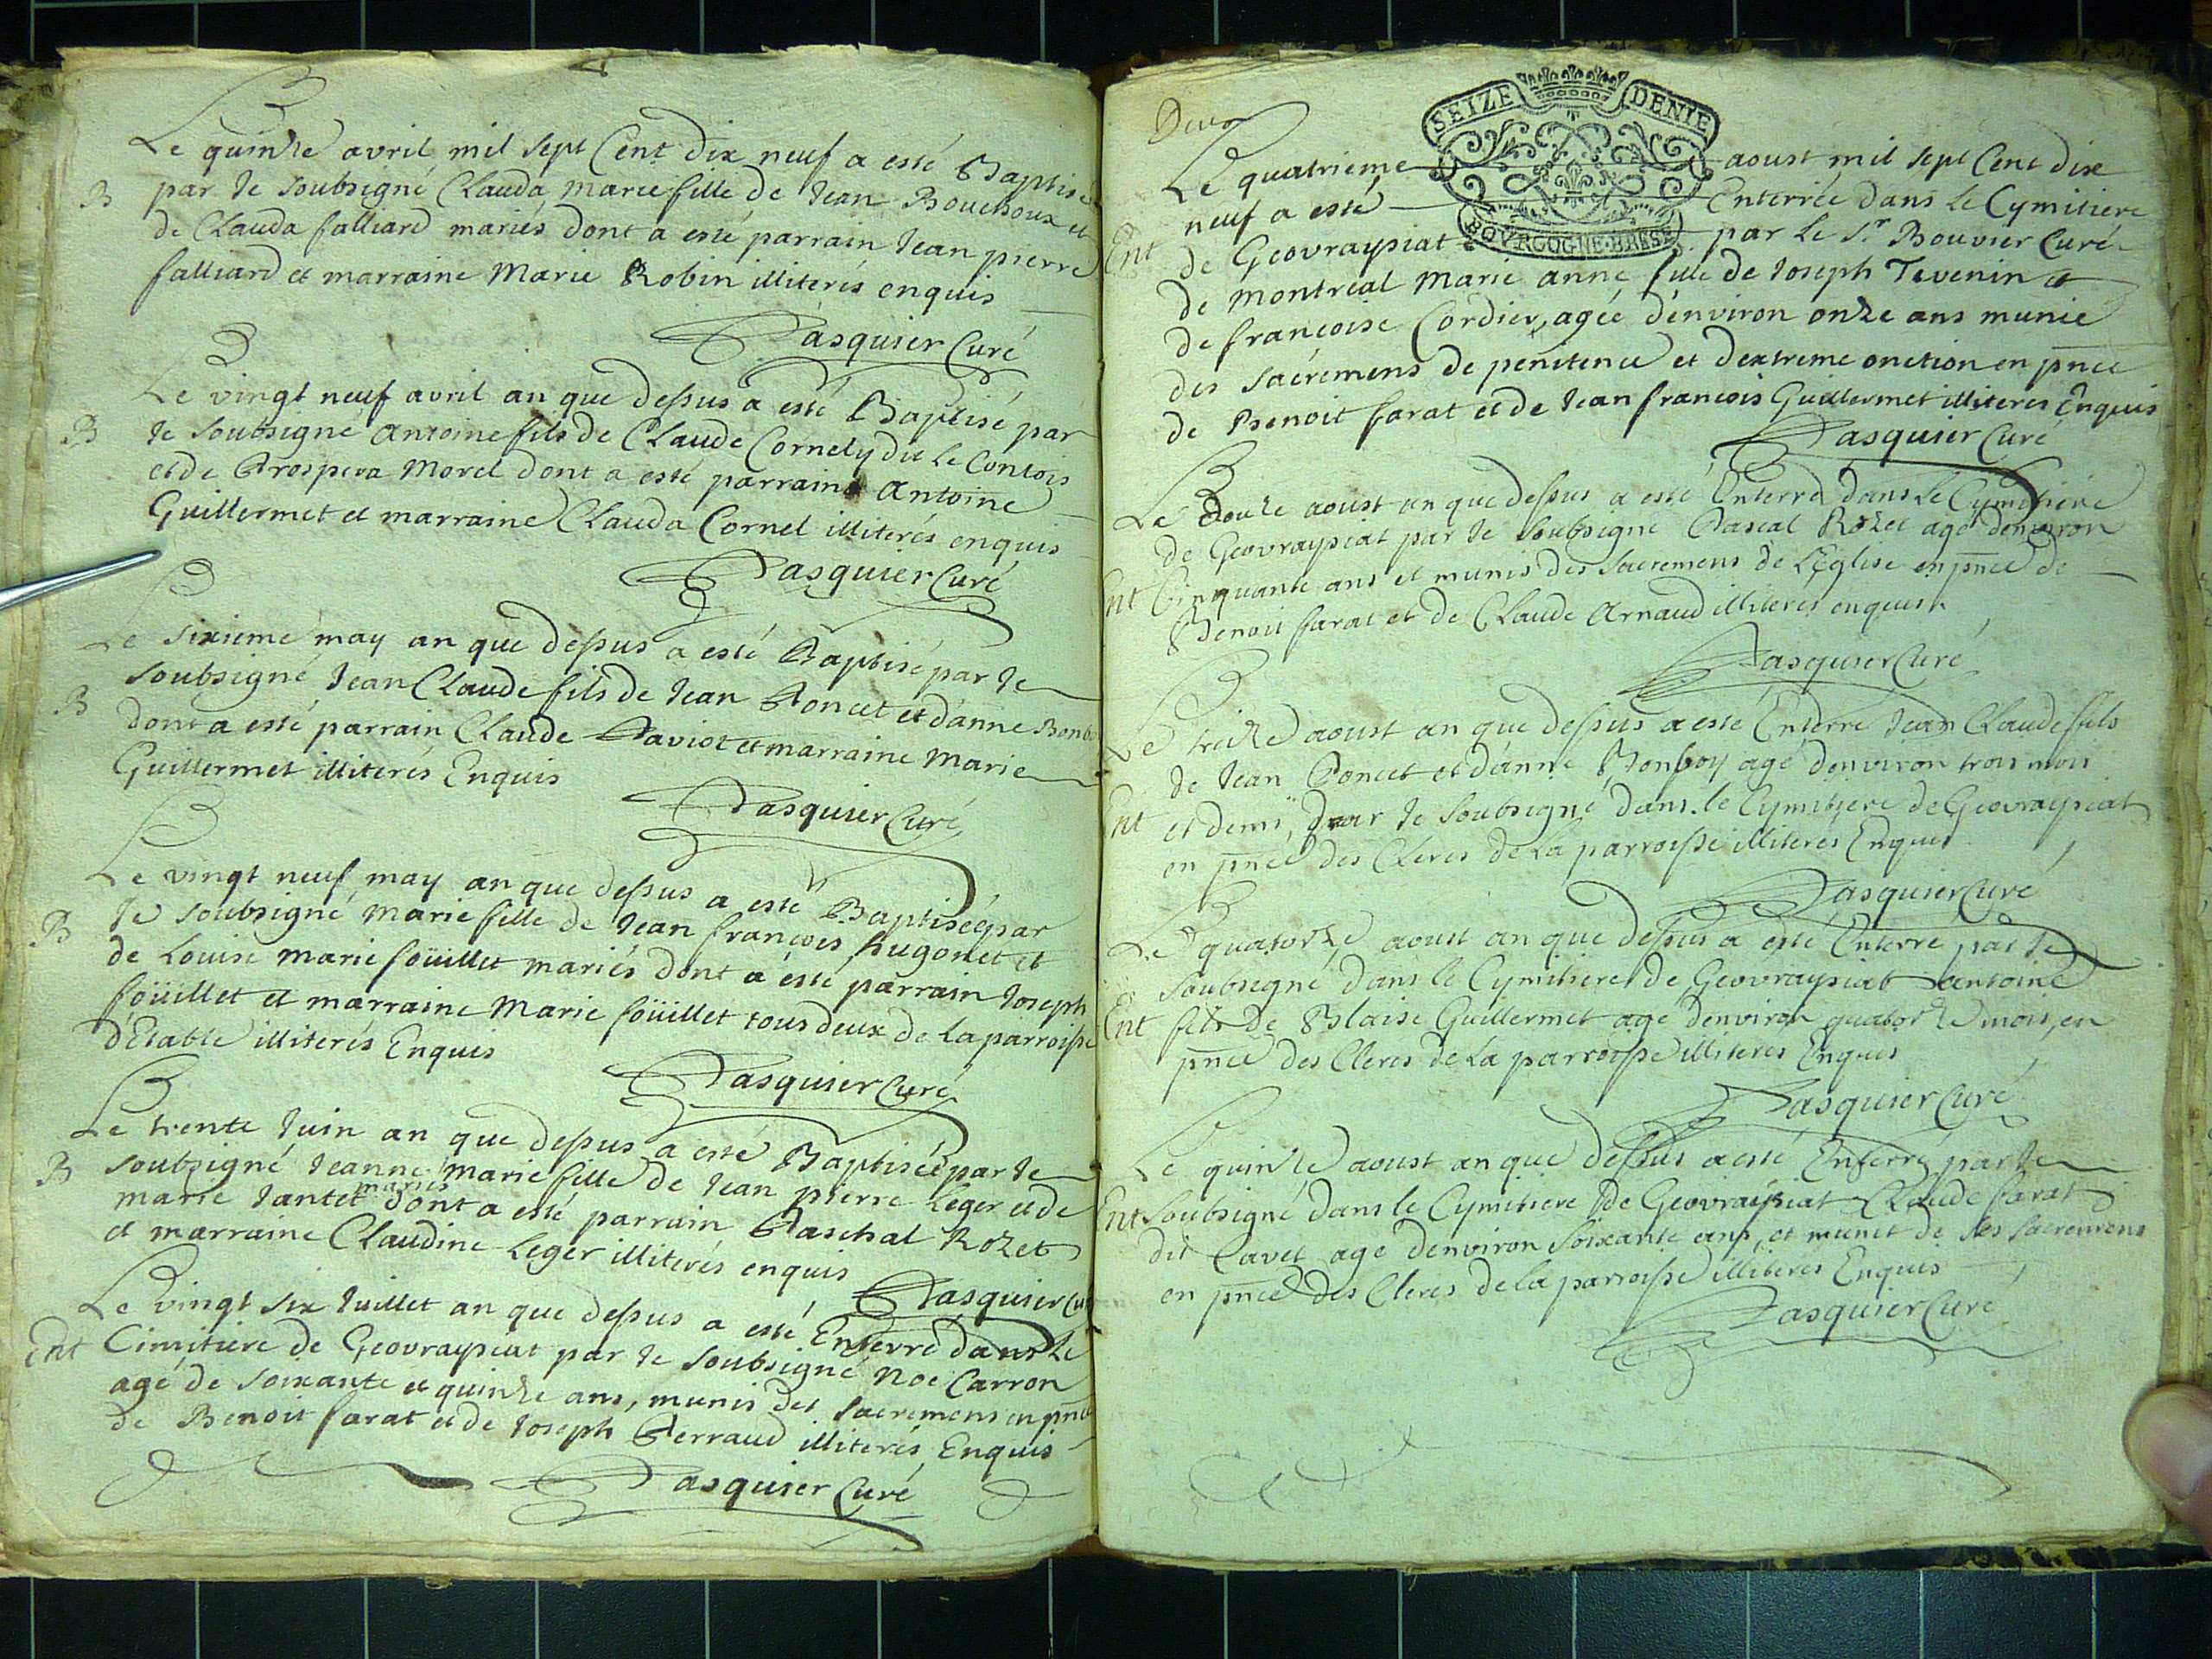 Le quinze avril mil sept Cent dix neuf a esté Baptisé
B par Je soubsigné Clauda marie fille de Jean Bouchoux et
de Clauda falliard mariés dont a esté parrain Jean pierre
falliard et marraine Marie Robin illiterés enquis
Pasquier Curé
Le vingt neuf avril an que dessus a esté Baptisé par
B Je soubsigné antoine fils de Claude Cornely dit le Contois
et de Prospera Morel dont a esté parrain antoine
Guillermet et marraine Clauda Cornel illiterés enquis
Pasquier Curé
Le sixieme may an que dessus a esté Baptisé par Je
B soubsigné Jean Claude fils de Jean Poncet et d'anne
dont a esté parrain Claude Paviot et marraine Marie
Guillermet illiterés Enquis
Pasquier Curé
Le vingt neuf may an que dessus a esté Baptisée par
B Je soubsigné Marie fille de Jean françois hugonet et
de Louise marie foüillet mariés dont a esté parrain Joseph
foüillet et marraine Marie foüillet tous deux de la parroisse
d'Etable illiterés Enquis
Pasquier Curé
Le trente Juin an que dessus a esté Baptisée par Je
B soubsigné Jeanne Marie fille de Jean pierre Leger et de
marie Jantet mariés dont a esté parrain Paschal Rozet
et marraine Claudine Leger illiterés enquis
Pasquier Cu
Le vingt six Juillet an que dessus a esté Enterré dans le
Ent Cimitiere de Geovraypiat par Je soubsigné Noé Carron
agé de soixante et quinze ans, munis des sacremens en pnce
de Benoit farat et de Joseph Perraud illiterés Enquis
Pasquier Curé
SEIZE DENIE
BOVRGOGNE·BRESE
Le quatrieme aoust mil sept Cent dix
neuf a esté Enterrée dans le Cymitiere
Ent de Geovraypiat par le Sr Bouvier Curé
de montreal Marie anne fille de Joseph Tevenin et
de françoise Cordier, agée d'environ onze ans munie
des sacremens de penitence et d'extreme onction en pnce
de Benoit farat et de Jean françois Guillermet illiteres Enquis
Pasquier Curé
Le douze aoust an que dessus a esté Enterré dans le Cymitiere
de Geovraypiat par Je soubsigné Pascal Rozet agé d'environ
Ent Cinquante ans et munis des sacremens de L'Eglise en pnce de
Benoit farat et de Claude Arnaud illiteres enquis
Pasquier Curé
Le treize aoust an que dessus a esté Enterré Jean Claude fils
de Jean Poncet et d'anne Bonboy agé d'environ trois mois
Ent et demi, par Je soubsigné dans le Cymitiere de Geovraypiat
en pnce des Clercs de la parroisse illiteres Enquis
Pasquier Curé
Le quatorze aoust an que dessus a esté Enterré par Je
soubsigné dans le Cymitiere de Geovraypiat antoine
Ent fils de Blaise Guillermet agé d'environ quatorze mois, en
pnce des Clercs de la parroisse illiteres Enquis
Pasquier Curé
Le quinze aoust an que dessus a esté Enterré par Je
Ent soubsigné dans le Cymitiere de Geovraypiat Claude farat
dit Cavet agé d'environ soixante ans, et munit de ses sacremens
en pnce des Clercs de la parroisse illiteres Enquis
Pasquier Curé